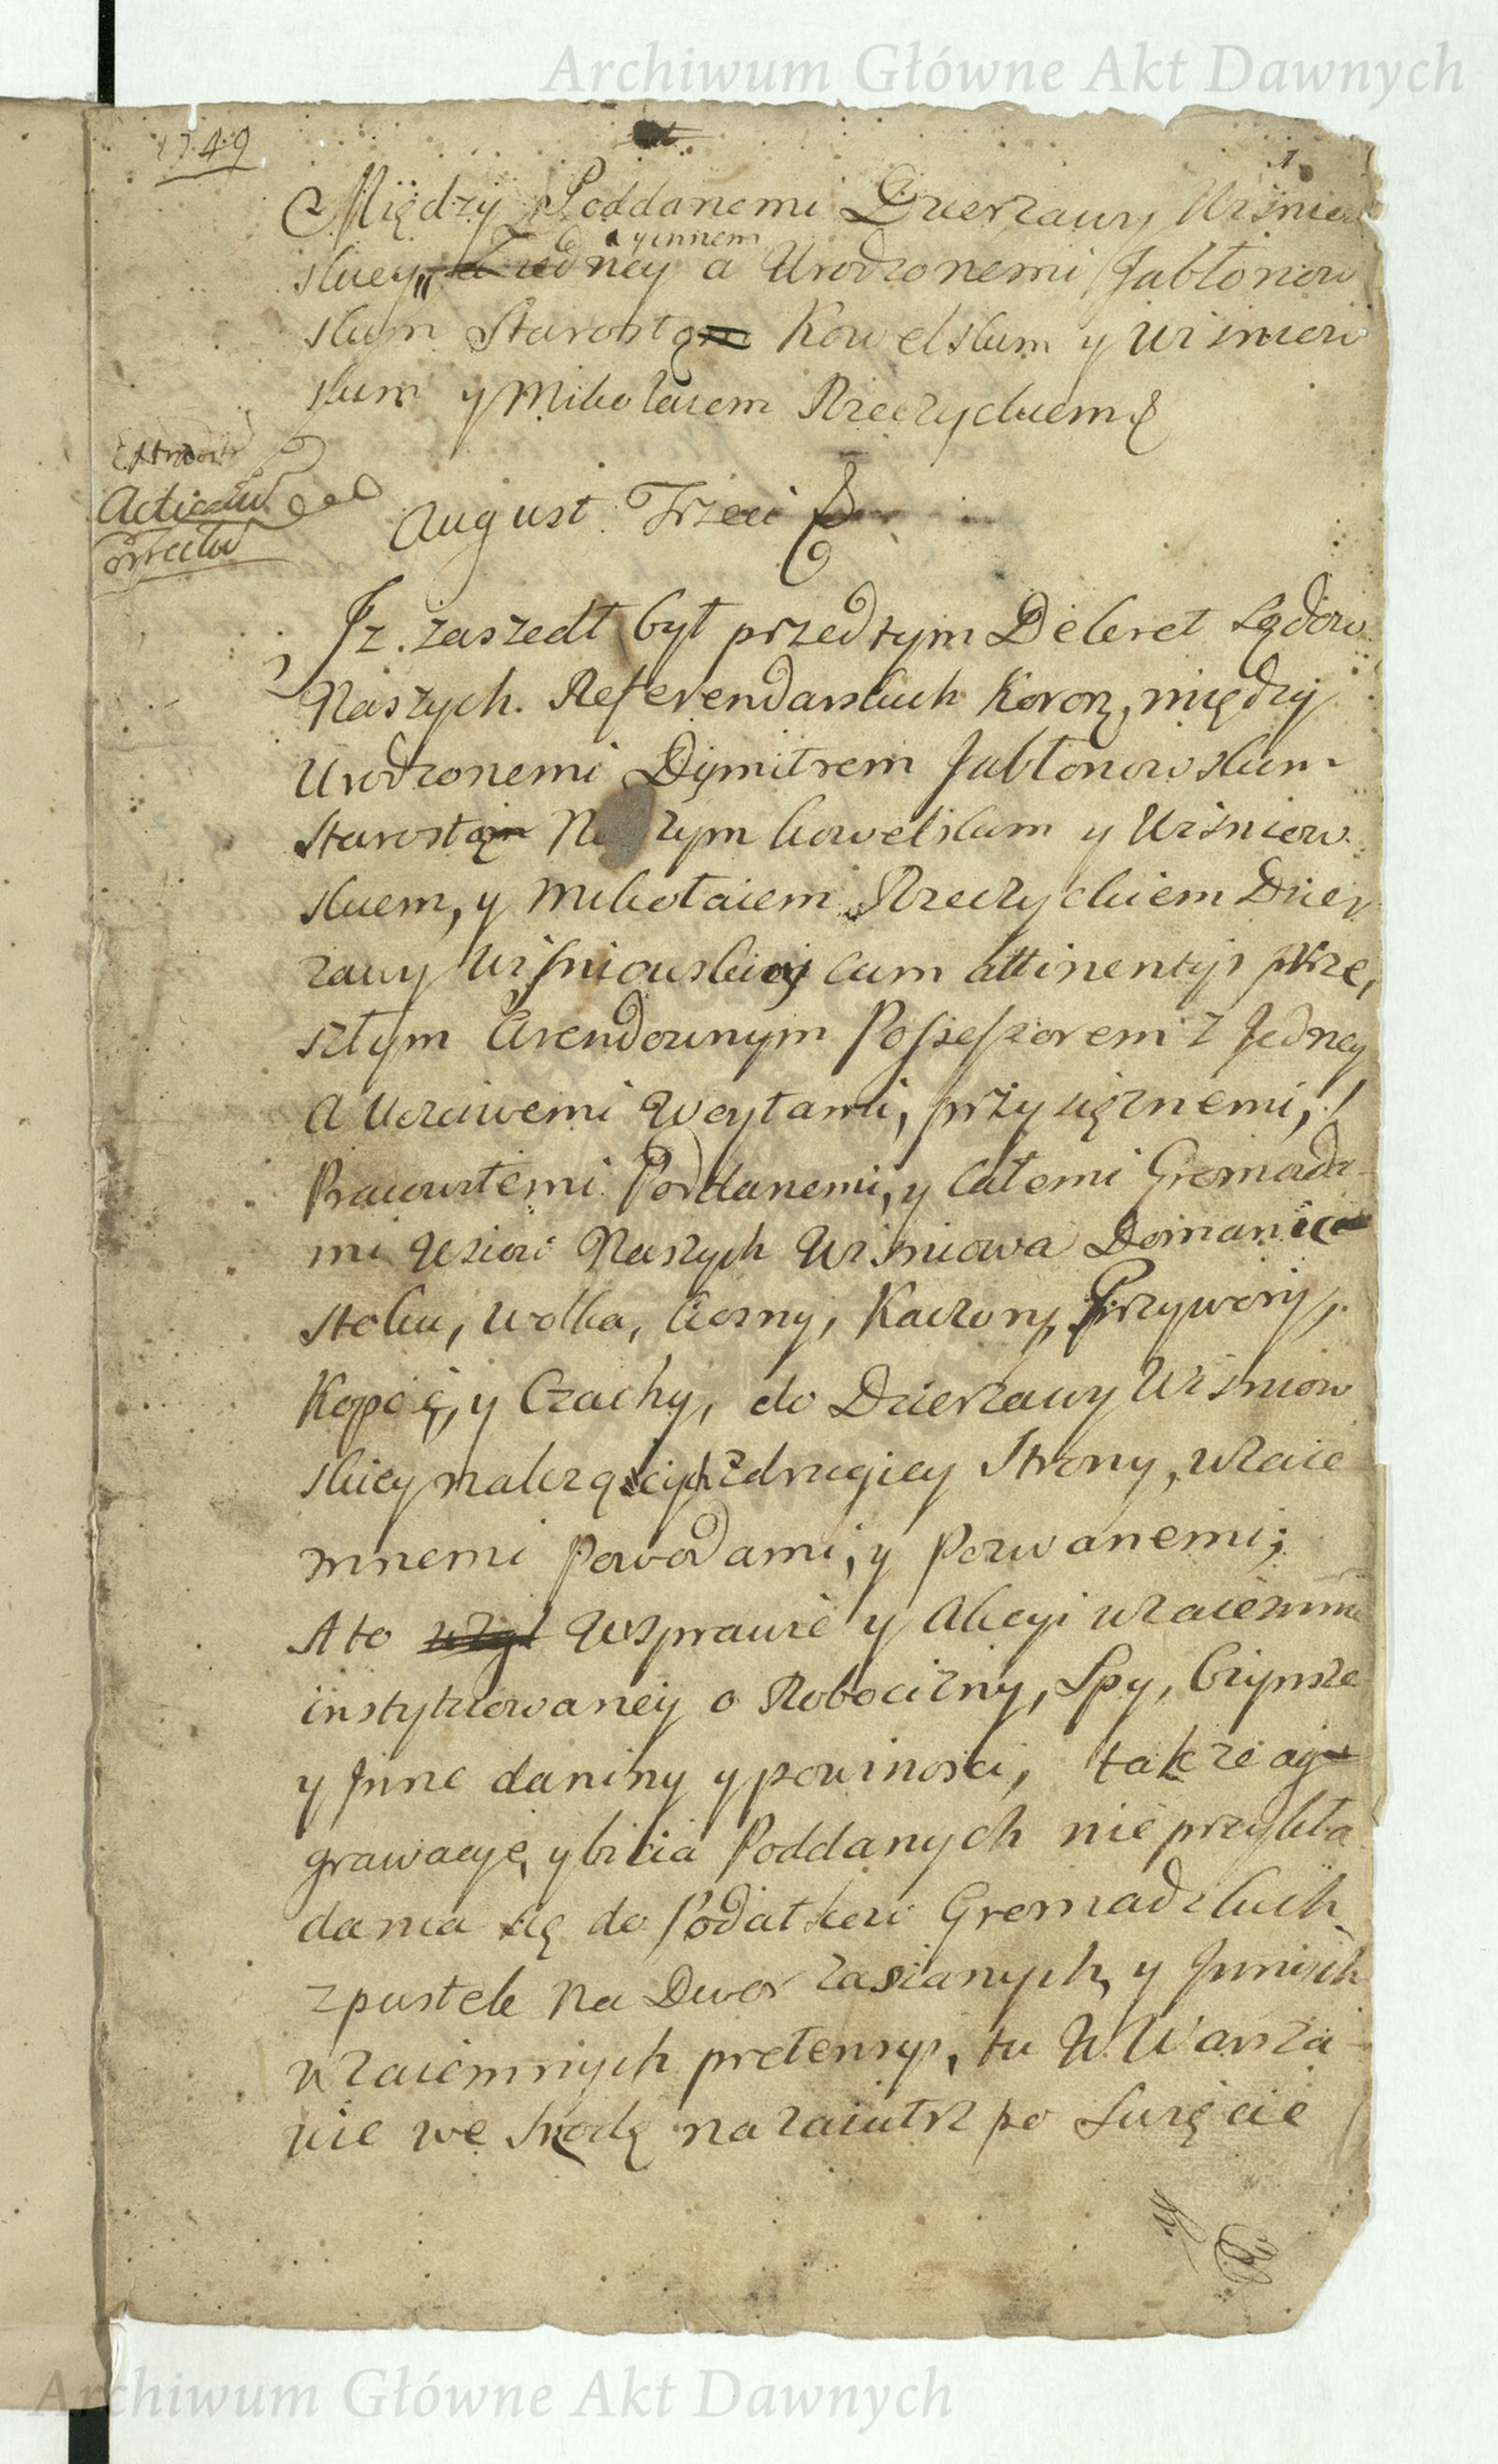 Archiwum Główne Akt Dawnych
1749
1
Między Poddanemi Dzierzawy Wiśniow
skiey y innem
a Urodzonemi Jabłonow
skim Starostą Kowelskim y Wiśniow
skim y Mikołaiem Rzeczyckiem
August Trzeci
Iz zaszedł był przedtym Dekret Sądow
Naszych Referendarskich Koron, między
Urodzonemi Dymitrem Jabłonowskim
Starostą Na zym kowelskim y Wiśniow
skiem, y Mikołaiem Rzeczyckiem Dzier
zawy Wiśniowskiey cum attinentys prze,
szłym Arendownym Possessorem z Jedney
A Uczciwemi Woytami, przysięznemi,
Pracowitemi Poddanemi, y całemi Gromada
mi Wsiow Naszych Wiśniowa Domanice
Stoku, Wolka, Ciosny, Kaczory, Przywory,
Kopcie, y Czachy, do Dzierzawy Wisniow
skiey nalezących zdrugiey Strony, wzaie
mnemi Powodami, y Pozwanemi;
A to Wsprawie y Akcyi wzaiemnie
instytuowaney o Robocizny, Spy, Czynsze
y Jnne daniny y powinosci, takze ag
grawacye, y bicia Poddanych nieprzykła
dania się do Podatkow Gromadzkich
zpustek na Dwor zasianych, y Jnnich
wzaiemnych pretensyi, tu W Warsza
wie we Srodę nazaiutrz po Swięcie
Archiwum Główne Akt Dawnych